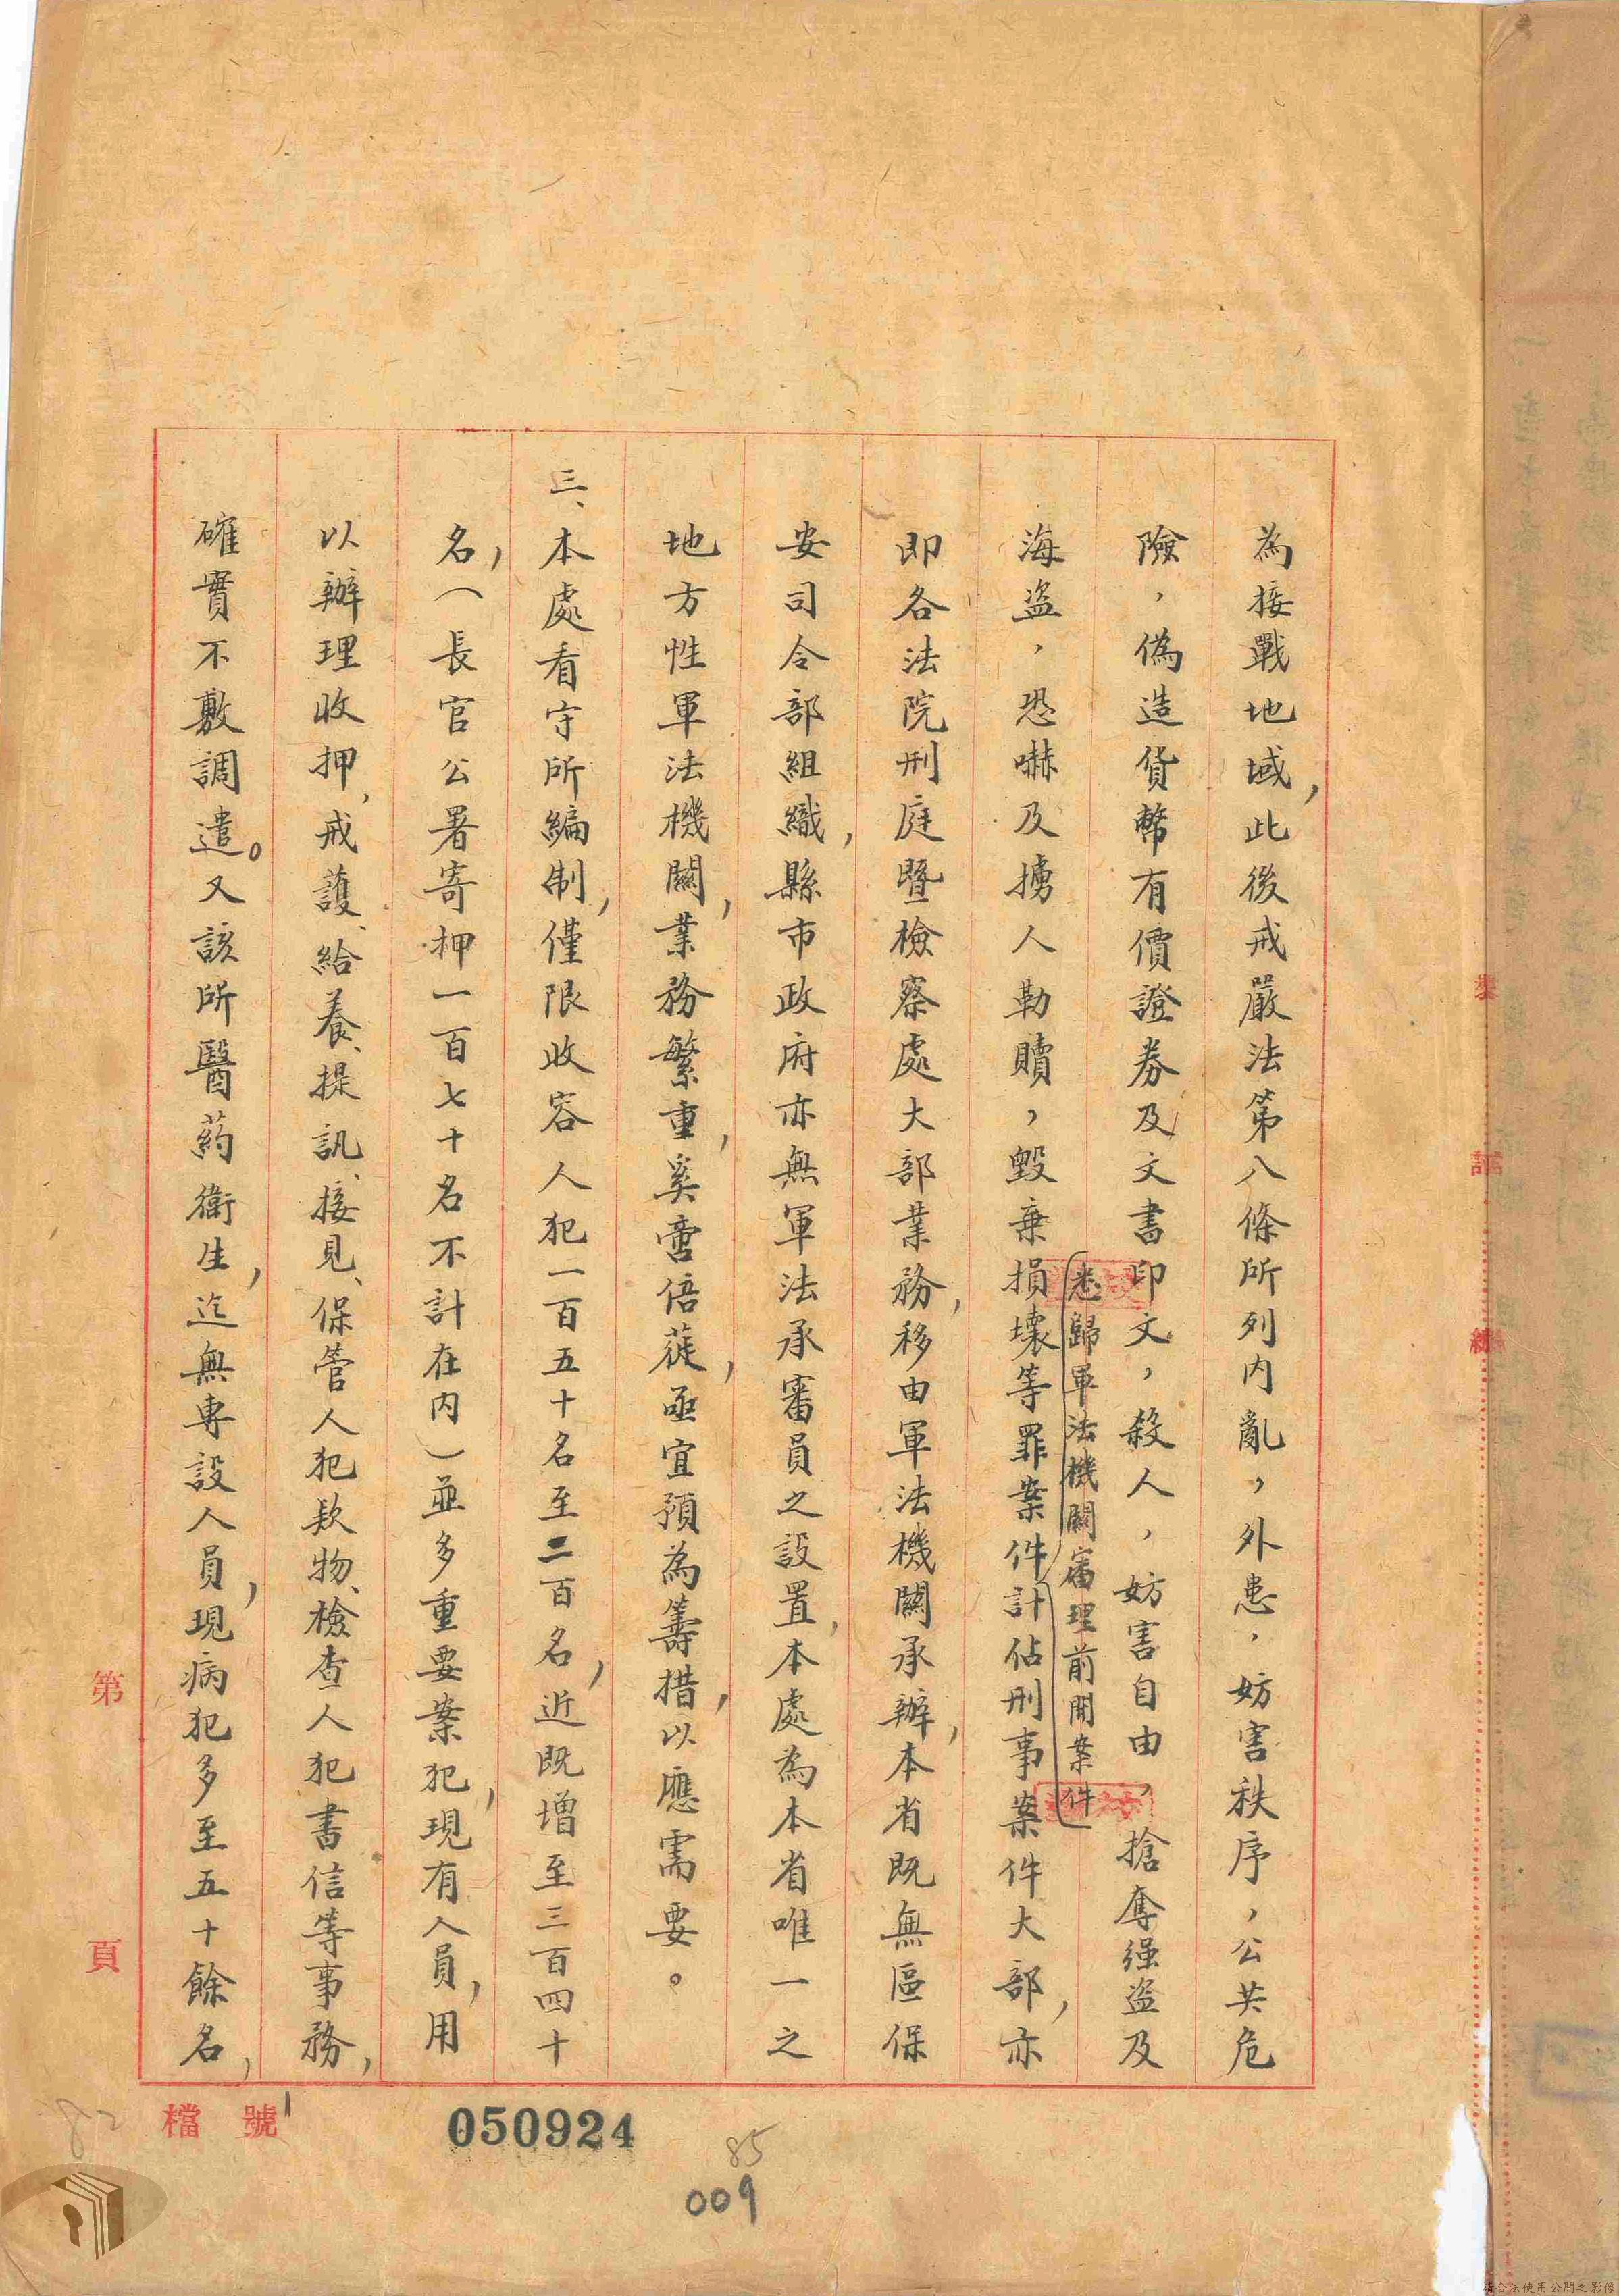 為接戰地域，此後戒嚴法第八條所列內亂，外患，妨害秩序，公共危
險，偽造貨幣有價證券及文書印文，殺人，妨害自由，搶奪强盜及
悉歸軍法機關審理前開案件
海盜，恐嚇及擄人勒贖，毀棄損壞等罪案件計佔刑事案件大部，亦
即各法院刑庭暨檢察處大部業務，移由軍法機關承辦，本省既無區保
安司令部組織，縣市政府亦無軍法承審員之設置，本處為本省唯一之
地方性軍法機關，業務繁重，奚啻倍蓰，亟宜預為籌措，以應需要。
三、本處看守所編制，僅限收容人犯一百五十名至二百名，近既增至三百四十
名，（長官公署寄押一百七十名不計在內）並多重要案犯，現有人員，用
以辦理收押、戒護、給養、提訊、接見、保管人犯欵物、檢查人犯書信等事務，
確實不敷調遣。又該所醫葯衛生，迄無專設人員，現病犯多至五十餘名，
第 頁
檔 號
050924
82
85
009